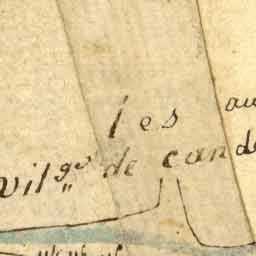 les au
vilge de cande